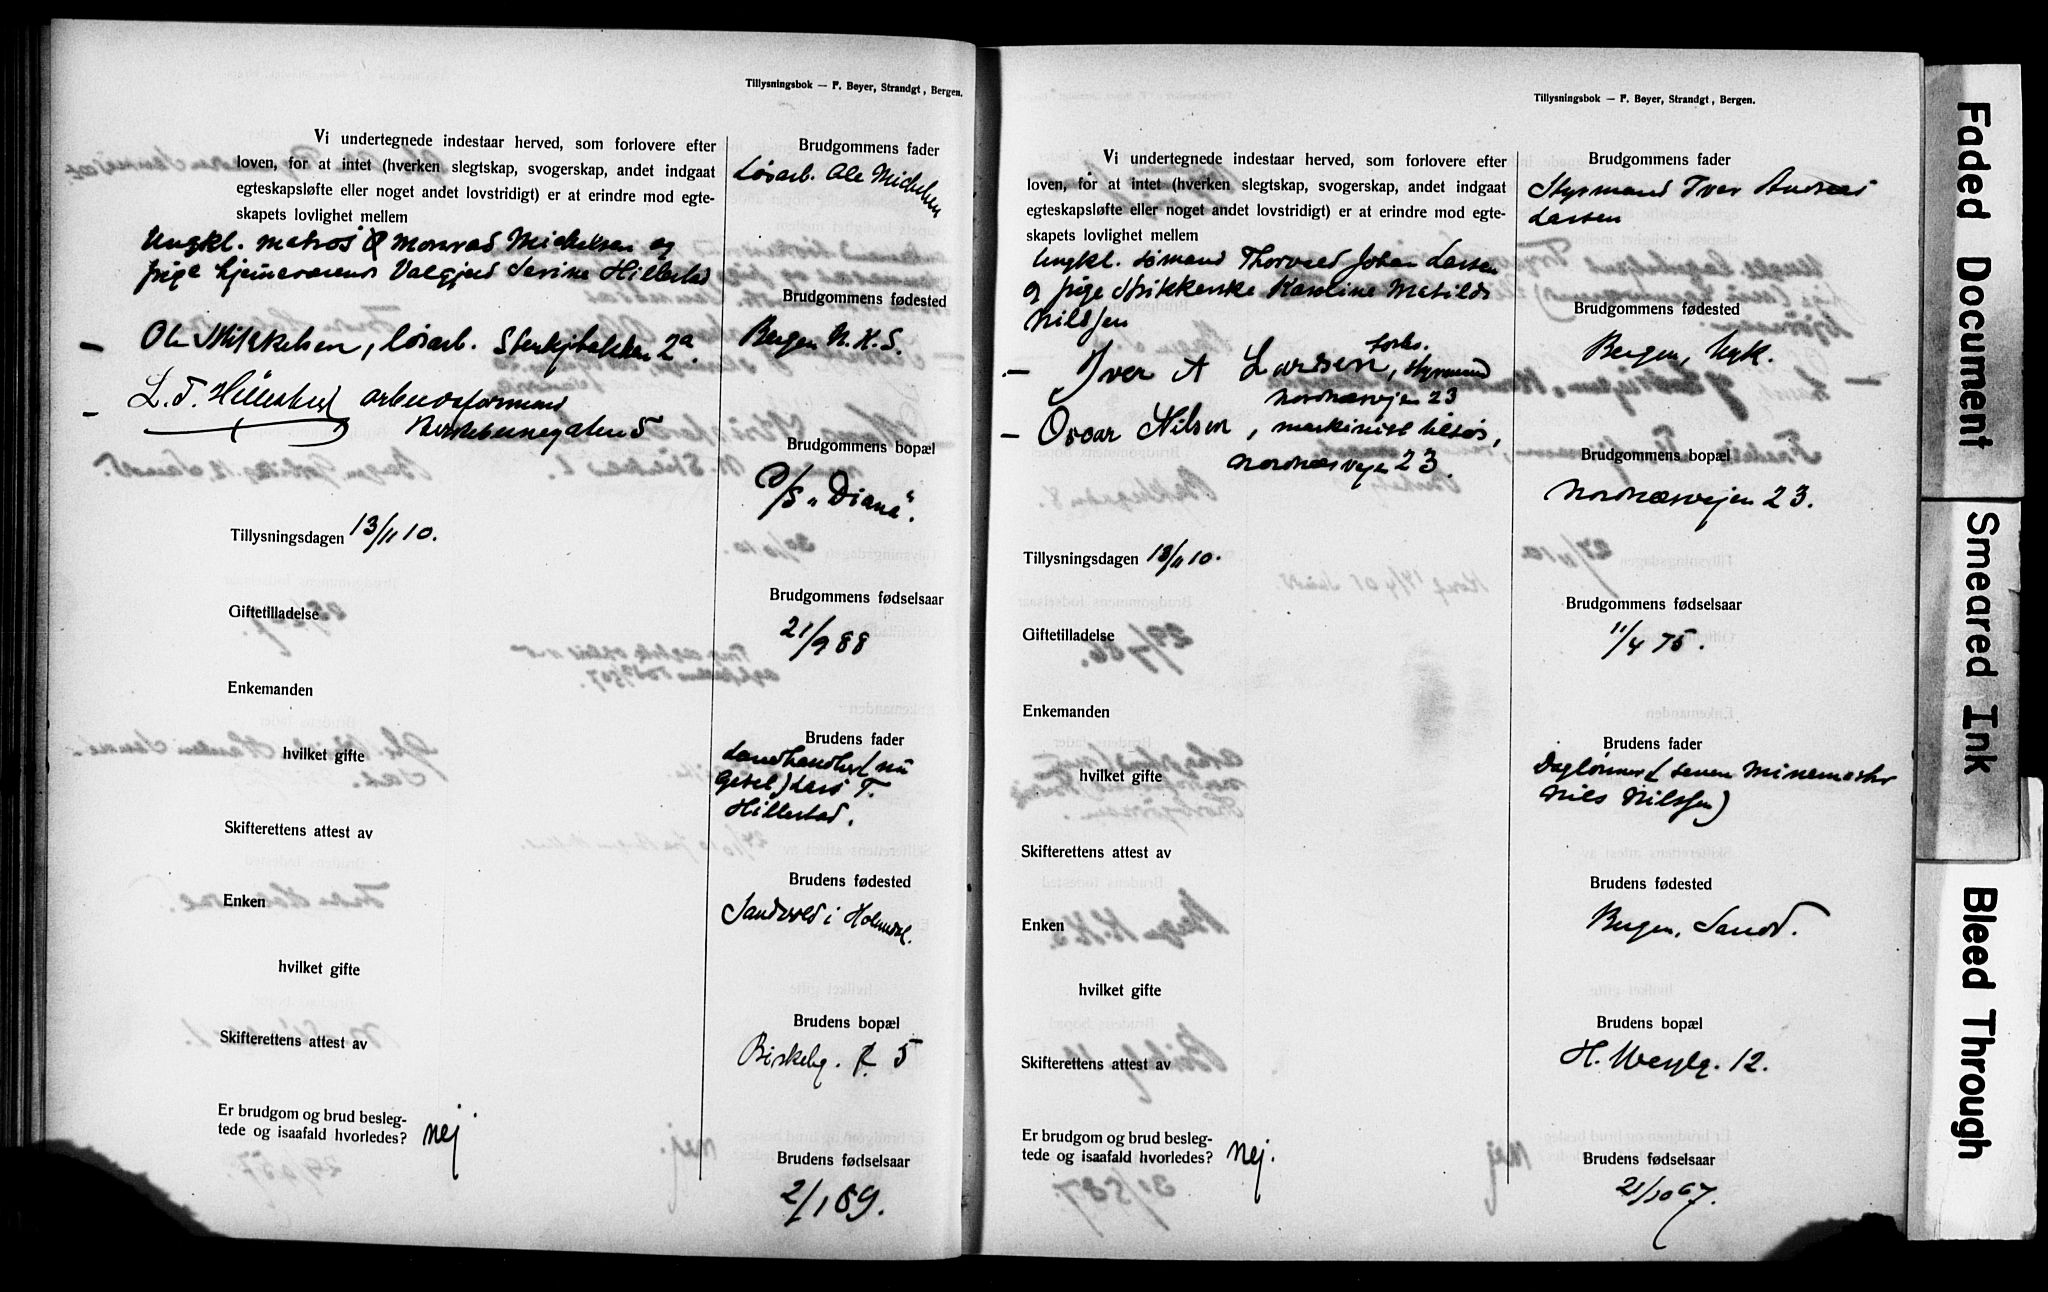 Tillysningsbok — F. Beyer, Strandgt, Bergen.
Vi undertegnede indestaar herved, som forlovere efter
loven, for at intet (hverken slegtskap, svogerskap, andet indgaat
egteskapsløfte eller noget andet lovstridigt) er at erindre mod egte-
skapets lovlighet mellem
Ungkl. matros Monrad Mickelsen og
pige hjemeværende Valgjerd Serine Hillestad
Ole Mikkelsen, løsarb. 2a
L. T. Hillestad arbeidsformand
Birkebeinergaten 5
Tillysningsdagen 13/11 10.
Giftetilladelse
Enkemanden
hvilket gifte
Skifterettens attest av
Enken
hvilket gifte
Skifterettens attest av
Er brudgom og brud besleg-
tede og isaafald hvorledes? nej
Brudgommens fader
Løsarb. Ole Mickelsen
Brudgommens fødested
Bergen N. K. S.
Brudgommens bopæl
D/S „Diana".
Brudgommens fødselsaar
21/9 88
Brudens fader
Landhandler (nu
) Lars T.
Hillestad.
Brudens fødested
i
Brudens bopæl
Birkebg. 5
Brudens fødselsaar
2/1 89.
Tillysningsbok — F. Beyer, Strandgt, Bergen.
Vi undertegnede indestaar herved, som forlovere efter
loven, for at intet (hverken slegtskap, svogerskap, andet indgaat
egteskapsløfte eller noget andet lovstridigt) er at erindre mod egte-
skapets lovlighet mellem
Ungkl. sømand Thorvald Johan Larsen
og pige Strikkerske Karoline Matilde
Nilssen
Iver A Larsen, forhv. styrmand
Nordnæsvejen 23
Oscar Nilsen, maskinist tilsøs,
Nordnæsvejen 23.
Tillysningsdagen 13/11 10.
Giftetilladelse
Enkemanden
hvilket gifte
Skifterettens attest av
Enken
hvilket gifte
Skifterettens attest av
Er brudgom og brud besleg-
tede og isaafald hvorledes? nej.
Brudgommens fader
Styrmand Iver Andreas
Larsen
Brudgommens fødested
Bergen, Nyk.
Brudgommens bopæl
Nordnæsvejen 23.
Brudgommens fødselsaar
11/4 75.
Brudens fader
Daglønner (senere Minemester
Nils Nilssen)
Brudens fødested
Bergen, Sandv.
Brudens bopæl
H. Wesselsg. 12.
Brudens fødselsaar
21/10 67.
Faded Document
Smeared Ink
Bleed Through